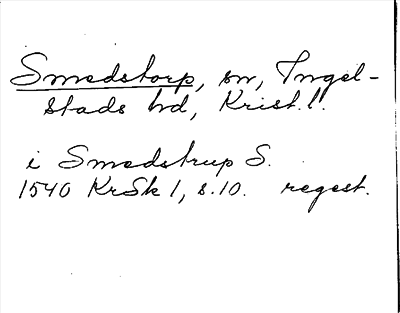 Smedstorp, sn, Ingel-
stads hd, Krist.l.
i Smedstrup S.
1540 KrSk 1, s.10. regest.